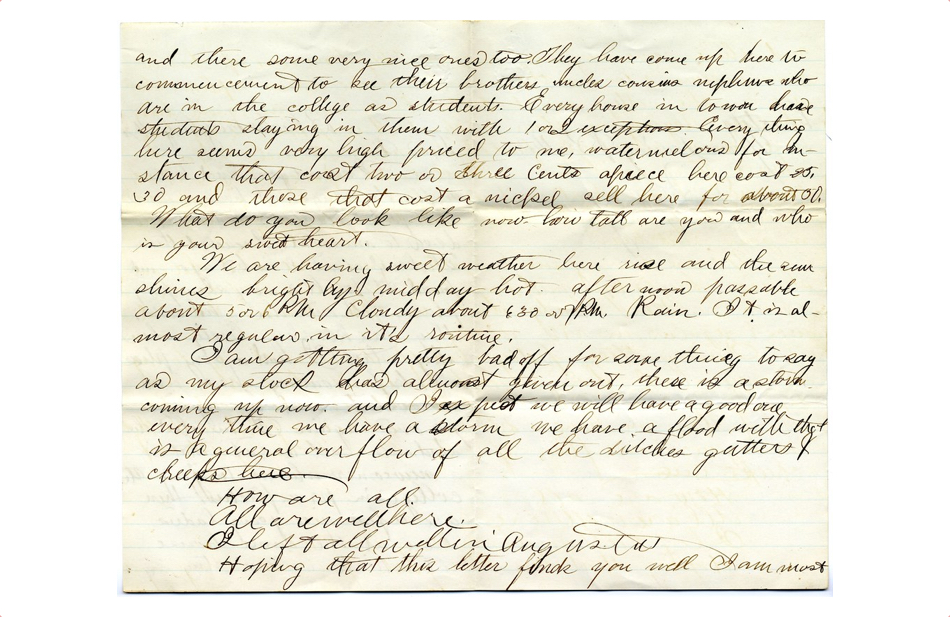 and there some very nice ones too. They have come up here to
commencement to see their brothers, uncles cousins nephews who
are in the college as students. Every house in town have
students staying in them with 1 or 2 exceptions. Every thing
here seems very high priced to me, watermelons for in-
stance that cost two or three Cents apiece here cost 25,
30 and those that cost a nickel sell here for about 50.
What do you look like now. how tall are you and who
is your sweet heart.
We are having sweet weather here rise and the sun
shines bright by midday hot. afternoon passable
about 5 or 6 P.M. Cloudy about 630 or 7 P.M. Rain. It is al-
most regular in its routine.
I am getting pretty bad off for some thing to say
as my stock has almost given out, there is a storm
coming up now. and I expect we will have a good one
every time we have a storm we have a flood with that
is a general overflow of all the ditches gutters &
creeks here
How are all.
All are well here.
I left all well in Augusta
Hoping that this letter finds you well I am most